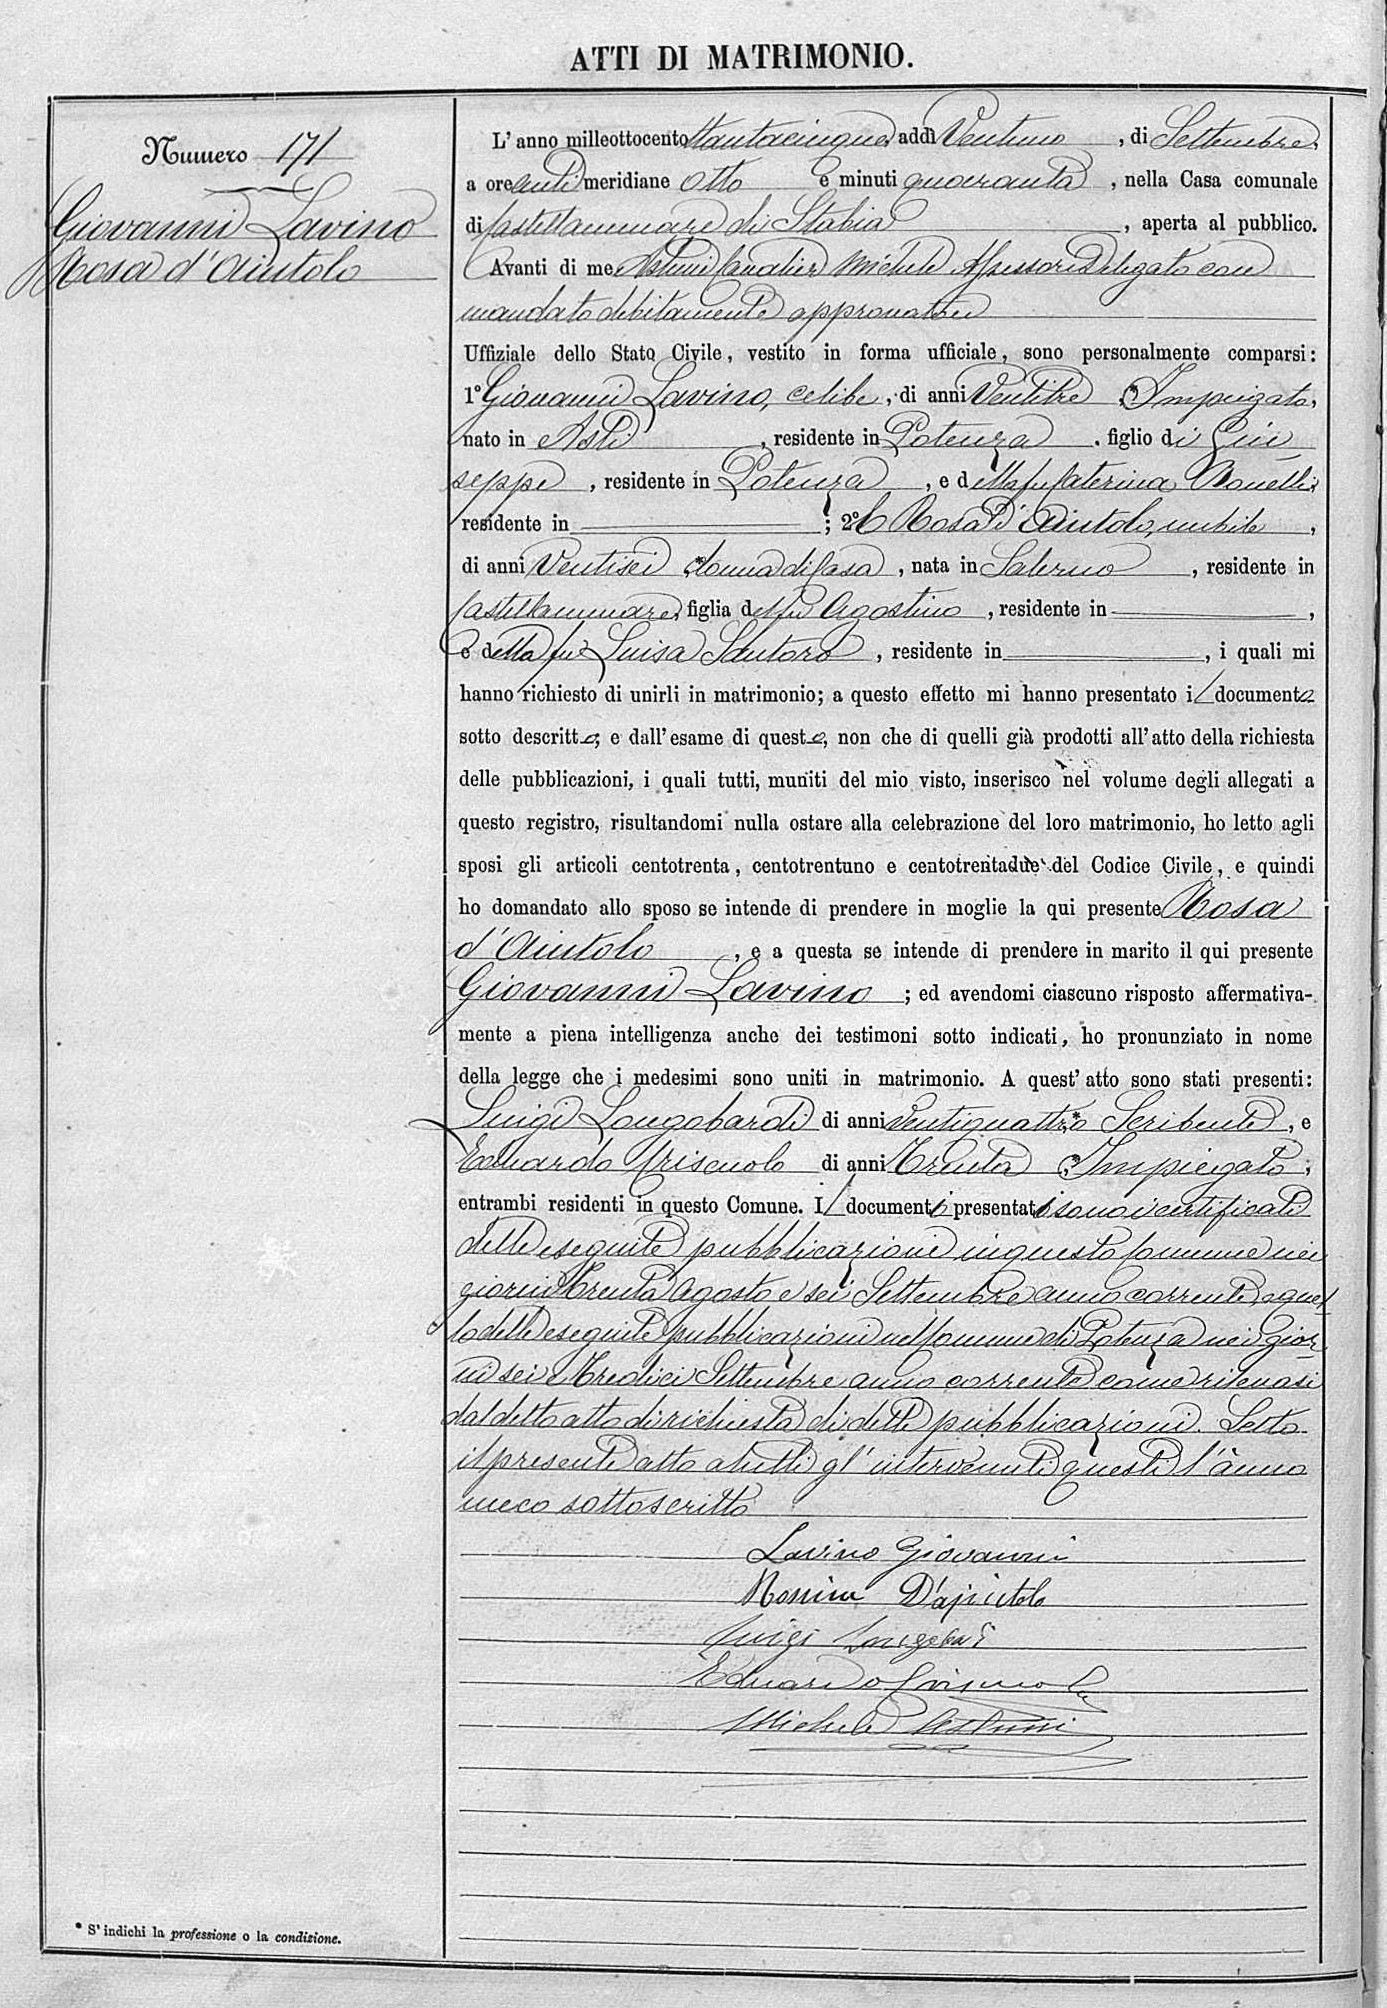 ATTI DI MATRIMONIO.
Numero 171
Giovanni Lavino
Rosa d'Aiutolo
L'anno milleottocento ttantacinque, addì Ventuno, di Settembre,
a ore anti meridiane otto e minuti quaranta, nella Casa comunale
di Castellammare di Stabia, aperta al pubblico.
Avanti di me Astuni Cavalier Michele Assessore Delegato con
mandato debitamente approvato
Uffiziale dello Stato Civile, vestito in forma ufficiale, sono personalmente comparsi:
1° Giovanni Lavino, celibe, di anni Ventitre, * Impiegato,
nato in Asti, residente in Potenza, figlio di Giu
seppe, residente in Potenza, e della fu Caterina
residente in ; 2° Rosa d'Aiutolo, nubile,
di anni Ventisei * donna di Casa, nata in Salerno, residente in
Castellammare, figlia del fu Agostino, residente in ,
e della fu Luisa Santoro, residente in , i quali mi
hanno richiesto di unirli in matrimonio; a questo effetto mi hanno presentato i/ documento
sotto descritto; e dall'esame di questo, non che di quelli già prodotti all'atto della richiesta
delle pubblicazioni, i quali tutti, muniti del mio visto, inserisco nel volume degli allegati a
questo registro, risultandomi nulla ostare alla celebrazione del loro matrimonio, ho letto agli
sposi gli articoli centotrenta, centotrentuno e centotrentadue del Codice Civile, e quindi
ho domandato allo sposo se intende di prendere in moglie la qui presente Rosa
d'Aiutolo, e a questa se intende di prendere in marito il qui presente
Giovanni Lavino; ed avendomi ciascuno risposto affermativa-
mente a piena intelligenza anche dei testimoni sotto indicati, ho pronunziato in nome
della legge che i medesimi sono uniti in matrimonio. A quest'atto sono stati presenti:
Luigi Longobardi di anni ventiquattro * Scribente, e
Eduardo Criscuolo di anni Trenta, * Impiegato,
entrambi residenti in questo Comune. I/ documenti presentati sono i certificati
delle eseguite pubblicazioni in questo Comune nei
giorni trenta Agosto e sei Settembre anno corrente, e quel
lo delle eseguite pubblicazioni nel Comune di Potenza nei gior
ni sei e tredici Settembre anno corrente come rilevasi
dal detto atto di richiesta di dette pubblicazioni. Letto
il presente atto a tutti gl'intervenuti questi l'anno
meco sottoscritto
Lavino Giovanni
Rosina D'ajutolo
Luigi Longobardi
Eduardo Criscuolo
Michele Astuni
* S'indichi la professione o la condizione.